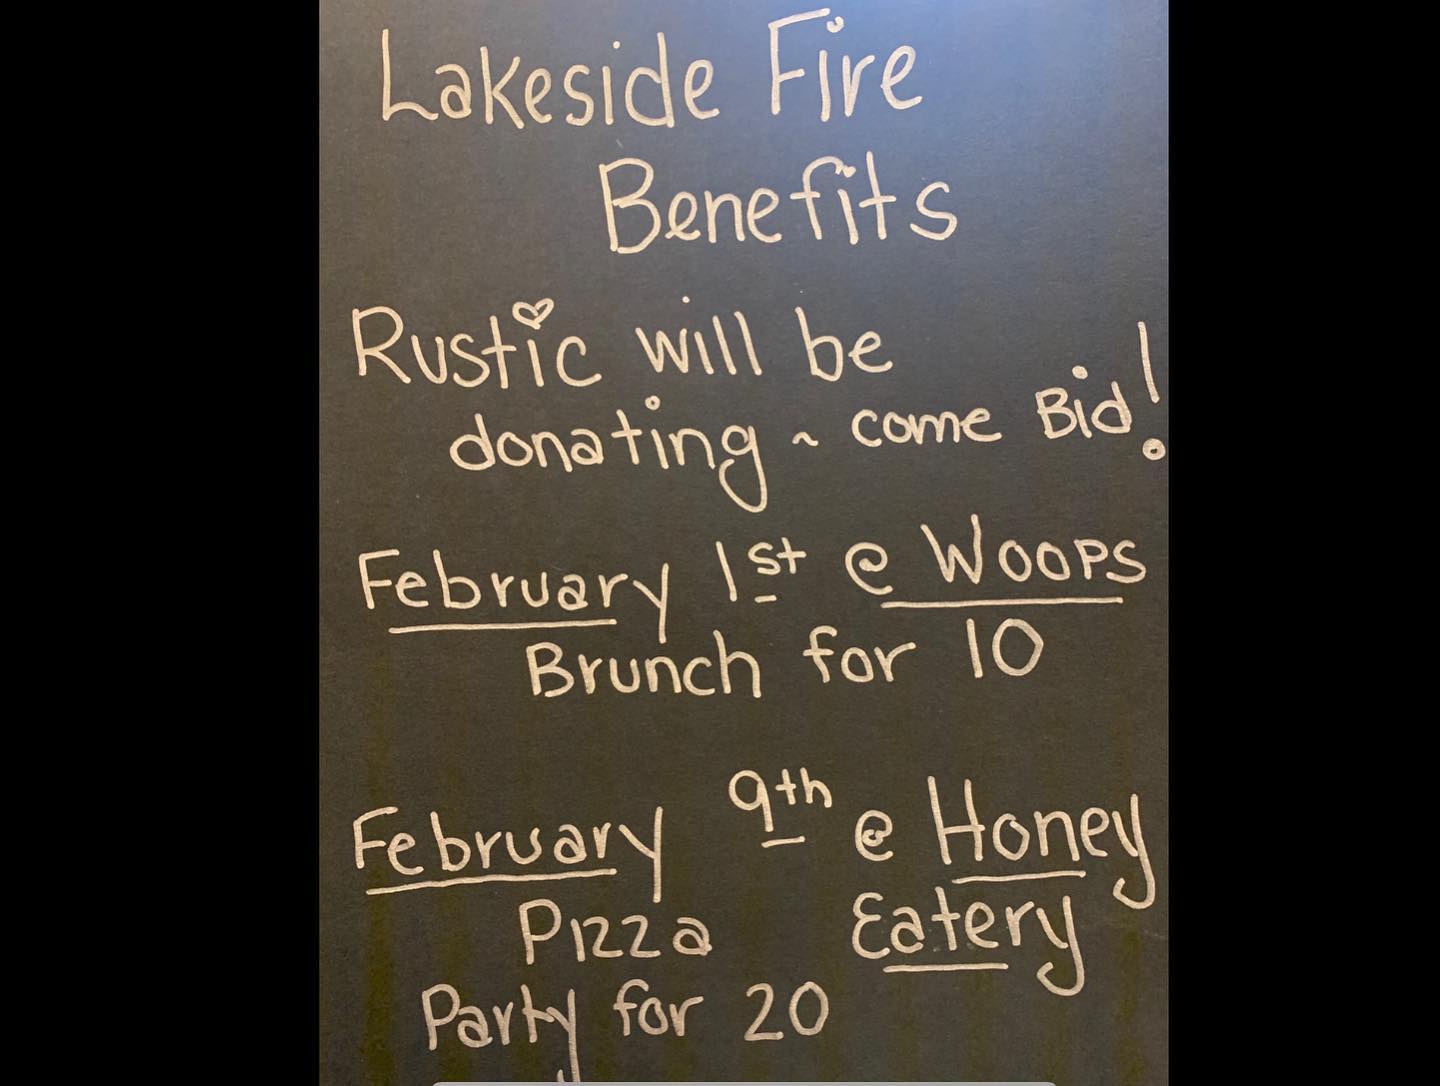 Lakeside Fire
Benefits
Rustic will be
donating ~ come Bid!
February 1st @ Woops
Brunch for 10
February 9th @ Honey
Pizza Eatery
Party for 20